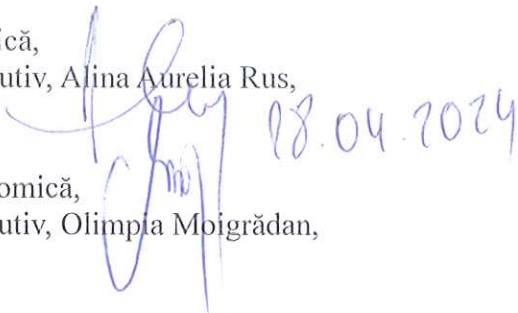 ică,
utiv, Alina Aurelia Rus,
28.04.2024
omică,
utiv, Olimpia Moigrădan,